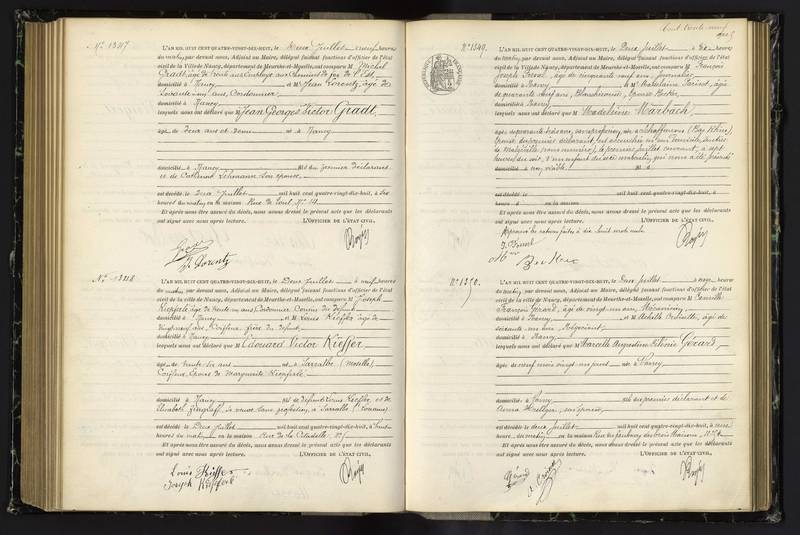 N° 1347
L'AN MIL HUIT CENT QUATRE-VINGT-DIX-HUIT, le Deux Juillet neuf heures
du matin, par devant nous, Adjoint au Maire, délégué faisant fonctions d'officier de l'état
civil de la Ville de Nancy, département de Meurthe-et-Moselle, ont comparu M Michel
Gradt, âgé de trente ans, Employé aux Chemins de fer de l'Est,
domicilié à Nancy et M Jean Lorentz, âgé de
ans, Cordonnier
domicilié à Nancy
lesquels nous ont déclaré que M Jean Georges Victor Gradt
âgé de Deux ans et Demi né à Nancy
domicilié à Nancy fils du premier déclarant
et de Catherine Lehmann son épouse
est décédé le Deux Juillet mil huit cent quatre-vingt-dix-huit, à
heures du matin en la maison Rue de Toul, N° 14
Et après nous être assuré du décès, nous avons dressé le présent acte que les déclarants
ont signé avec nous après lecture. L'OFFICIER DE L'ÉTAT CIVIL,
Gradt
J. Lorentz
N° 1348
L'AN MIL HUIT CENT QUATRE-VINGT-DIX-HUIT, le Deux Juillet à neuf heures
du matin, par devant nous, Adjoint au Maire, délégué faisant fonctions d'officier de l'état
civil de la ville de Nancy, département de Meurthe-et-Moselle, ont comparu M Joseph
Kiepferlé âgé de trente ans, Cordonnier Cousin du défunt
domicilié à Nancy et M Louis Kieffer âgé de
vingt neuf ans, Coiffeur, frère du défunt
domicilié à Nancy
lesquels nous ont déclaré que M Edouard Victor Kieffer
âgé de trente six ans né à Sarralbe (Moselle)
Coiffeur, Époux de Marguerite Kiepferlé
domicilié à Nancy fils de défunt Louis Kieffer, et de
Elisabeth sa veuve sans profession, à Sarralbe (Lorraine)
est décédé le Deux Juillet mil huit cent quatre-vingt-dix-huit, à
heures du matin en la maison Rue de la Citadelle,
Et après nous être assuré du décès, nous avons dressé le présent acte que les déclarants
ont signé avec nous après lecture. L'OFFICIER DE L'ÉTAT CIVIL,
Louis Kieffer
Joseph Kiepferlé
cent trente neuf
N° 1349
L'AN MIL HUIT CENT QUATRE-VINGT-DIX-HUIT, le Deux Juillet à dix heures
du matin, par devant nous, Adjoint au Maire, délégué faisant fonctions d'officier de l'état
civil de la Ville de Nancy, département de Meurthe-et-Moselle, ont comparu M François
Joseph âgé de cinquante neuf ans, journalier
domicilié à Nancy et M Madeleine âgée
de quarante ans, Blanchisseuse, épouse Becker
domiciliée à Nancy
lesquels nous ont déclaré que M Madeleine Warbach
âgée de quarante trois ans, sans profession, née à (Bas Rhin),
épouse du premier déclarant, est accouchée en son domicile,
de le premier juillet courant, à sept
heures du soir, d'un enfant du sexe masculin, qui nous a été présenté
domicilié à non viable. fil d
est décédé le mil huit cent quatre-vingt-dix-huit, à
heures en la maison
Et après nous être assuré du décès, nous avons dressé le présent acte que les déclarants
ont signé avec nous après lecture. L'OFFICIER DE L'ÉTAT CIVIL,
Mme Becker
N° 1350
L'AN MIL HUIT CENT QUATRE-VINGT-DIX-HUIT, le Deux Juillet à onze heures
du matin, par devant nous, Adjoint au Maire, délégué faisant fonctions d'officier de l'état
civil de la ville de Nancy, département de Meurthe-et-Moselle, ont comparu M Camille
François Gérard, âgé de vingt-un ans, Mécanicien
domicilié à Nancy et M Achille âgé de
soixante-un ans, Négociant
domicilié à Nancy
lesquels nous ont déclaré que M Marcelle Augustine Gérard
âgée de neuf mois vingt-un jours née à Nancy
domiciliée à Nancy fille du premier déclarant et de
Anna son épouse
est décédée le deux juillet mil huit cent quatre-vingt-dix-huit, à
heures du matin en la maison Rue du faubourg des trois Maisons, N°
Et après nous être assuré du décès, nous avons dressé le présent acte que les déclarants
ont signé avec nous après lecture. L'OFFICIER DE L'ÉTAT CIVIL,
Gérard